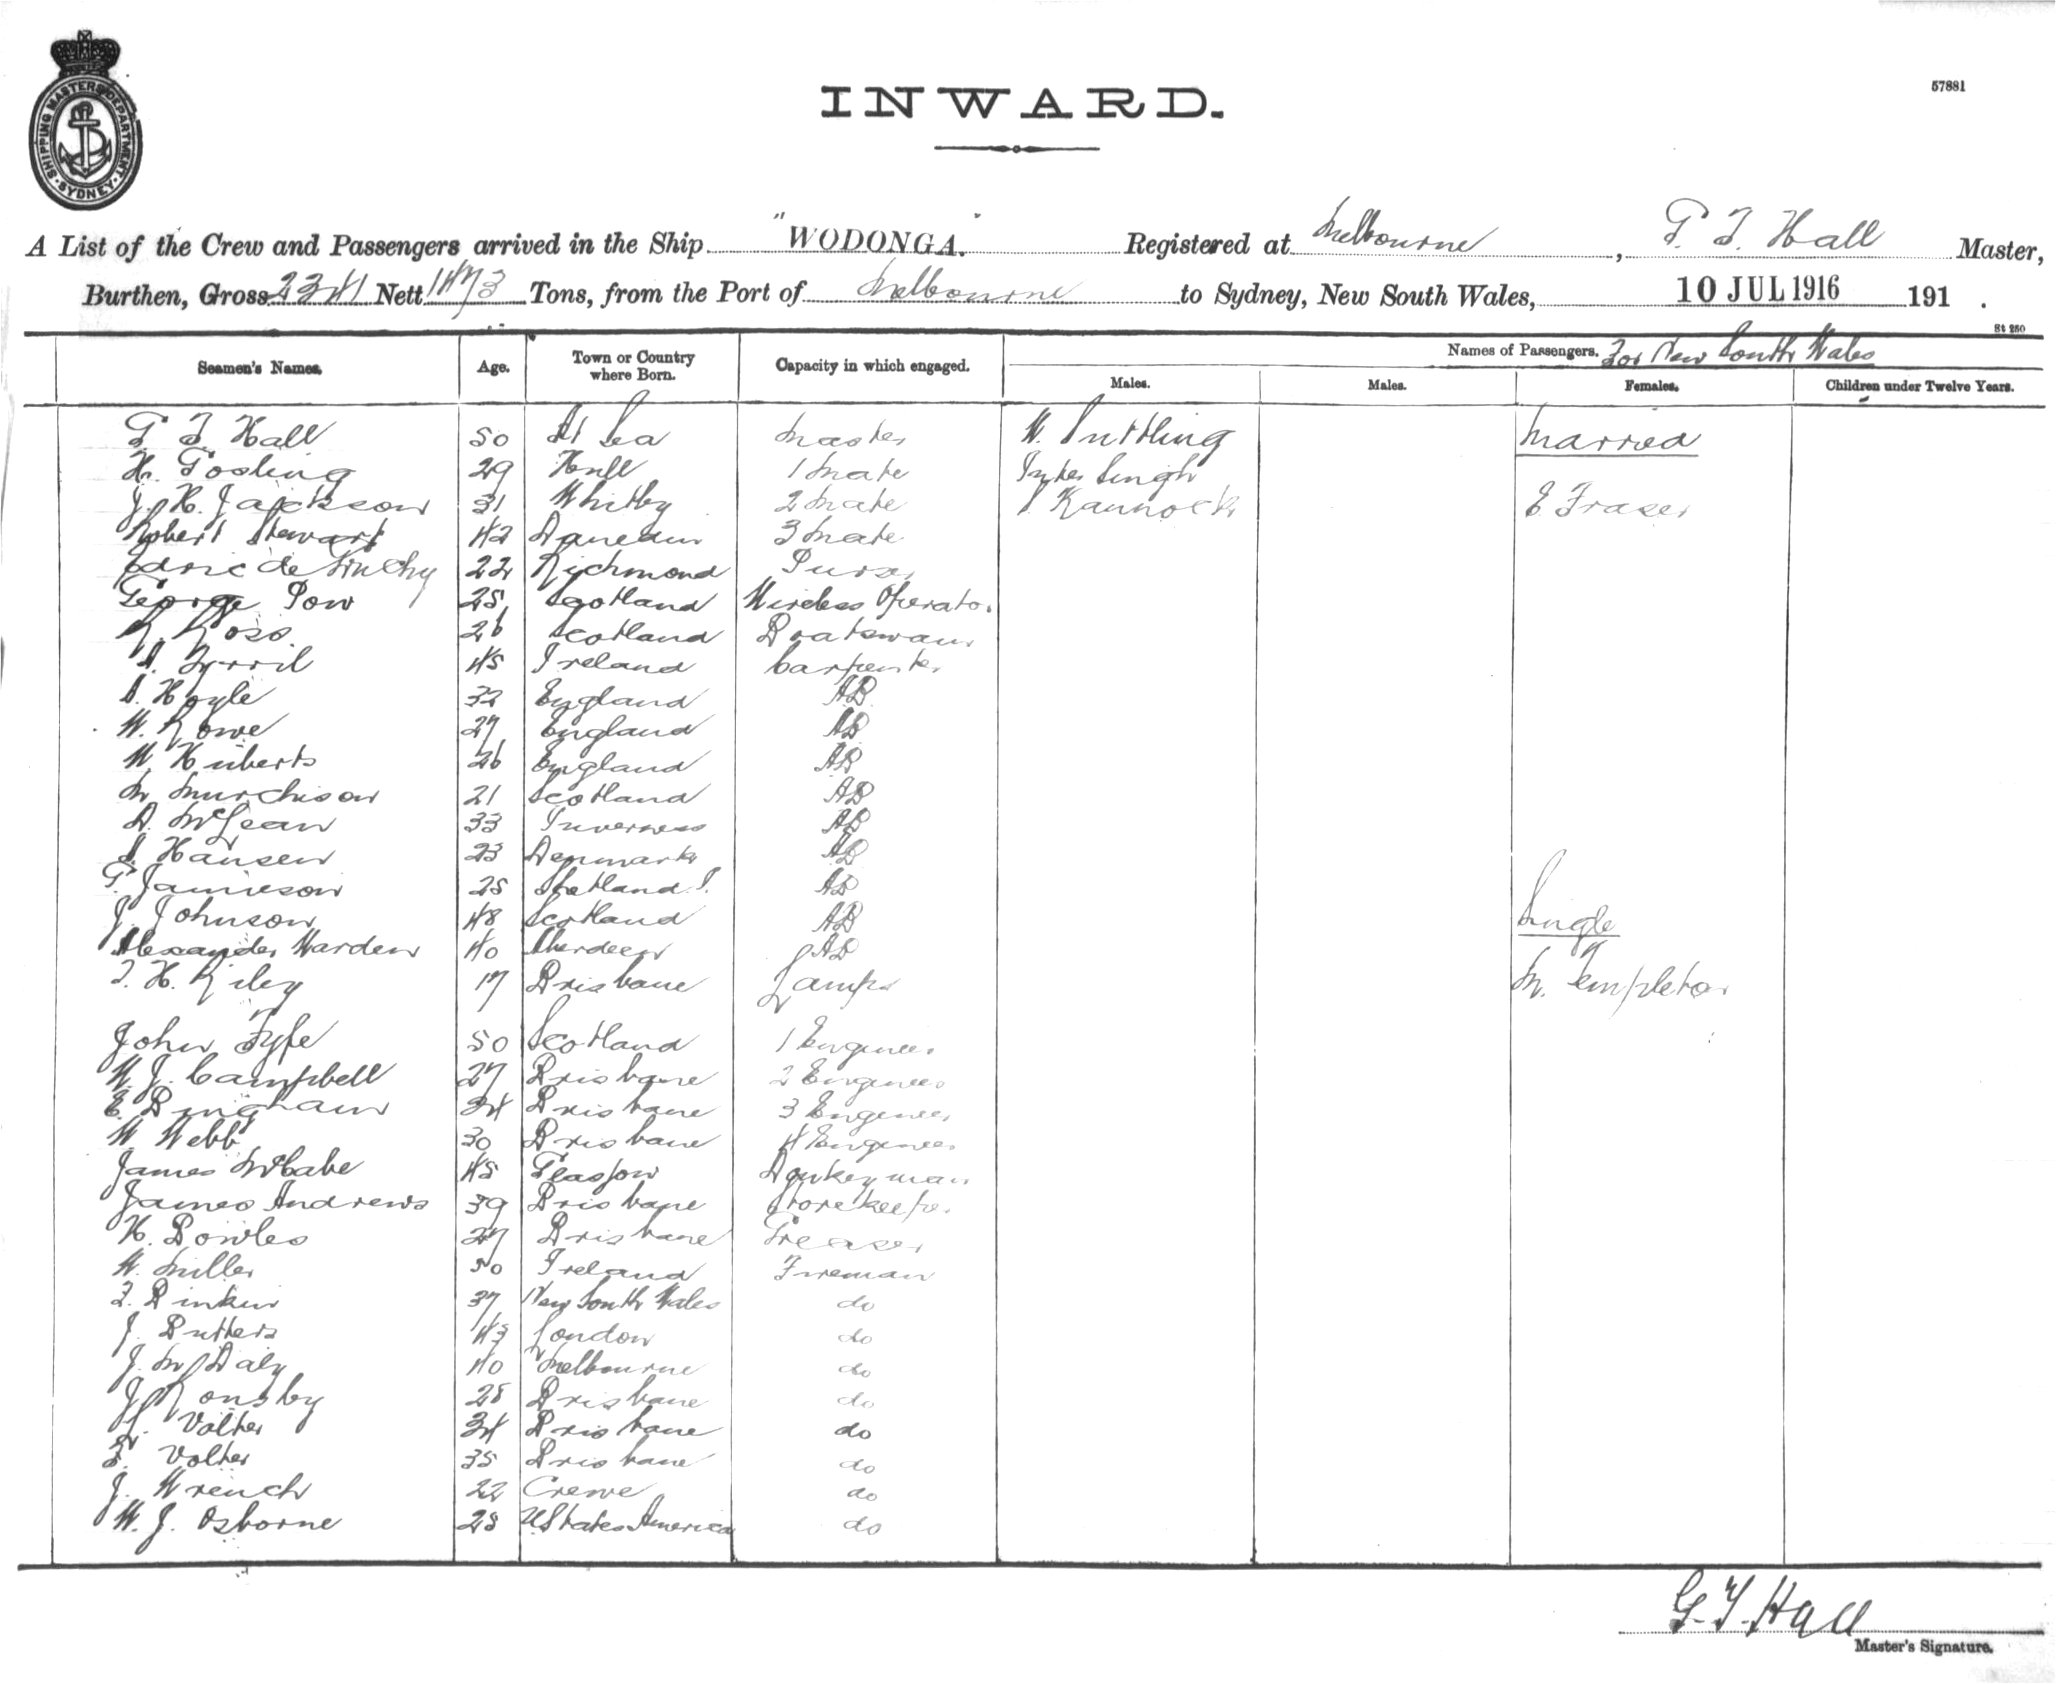 SHIPPING MASTERS DEPARTMENT SYDNEY
57881
INWARD.
A List of the Crew and Passengers arrived in the Ship "WODONGA." Registered at Melbourne, G. T. Hall Master,
Burthen, Gross 2341 Nett 1473 Tons, from the Port of Melbourne to Sydney, New South Wales, 10 JUL 1916 191 .
St 250
Seamen's Names. Age. Town or Country where Born. Capacity in which engaged. Names of Passengers. For New South Wales
Males. Males. Females. Children under Twelve Years.
G T Hall 50 At Sea Master W. Married
H. Gosling 29 Hull 1 Mate Singh
J. H. Jackson 31 Whitby 2 Mate E Fraser
Robert Stewart 42 Dunedin 3 Mate
de 22 Richmond Purser
George Pow 25 Scotland Wireless Operator
R. Ross 26 Scotland Boatswain
Tyrril 45 Ireland Carpenter
Hoyle 32 England AB
W. Rowe 27 England AB
W. Huberts 26 England AB
M Murchison 21 Scotland AB
D. McLean 33 Inverness AB
Hansen 23 Denmark AB
G. Jamieson 25 Shetland I. AB
J. Johnson 48 Scotland AB Single
Alexander Warden 40 Aberdeen AB
T. H. Riley 17 Brisbane Lamps M. Templeton
John Fyfe 50 Scotland 1 Engineer
W. J. Campbell 27 Brisbane 2 Engineer
E. Bingham 34 Brisbane 3 Engineer
W Webb 30 Brisbane 4 Engineer
James McCabe 45 Glasgow Donkeyman
James Andrews 39 Brisbane Storekeeper
H. Bowles 27 Brisbane Greaser
W. Miller 50 Ireland Fireman
T. 37 New South Wales do
J. Butters 43 London do
J. M Daly 40 Melbourne do
J Ronsby 28 Brisbane do
Volter 34 Brisbane do
F. Volter 35 Brisbane do
J. Wrench 22 Crewe do
W. J. Osborne 28 U States America do
G. T. Hall
Master's Signature.